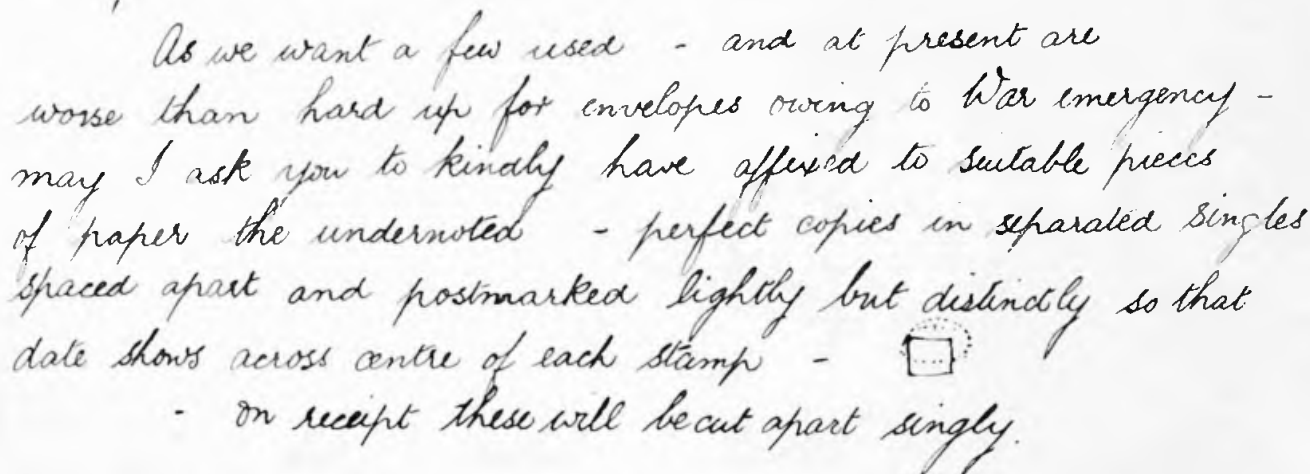 As we want a few used - and at present are
worse than hard up for envelopes owing to War emergency -
may I ask you to kindly have affixed to suitable pieces
of paper the undernoted - perfect copies in separated singles
spaced apart and postmarked lightly but distinctly so that
date shows across centre of each stamp -
- on receipt these will be cut apart singly.